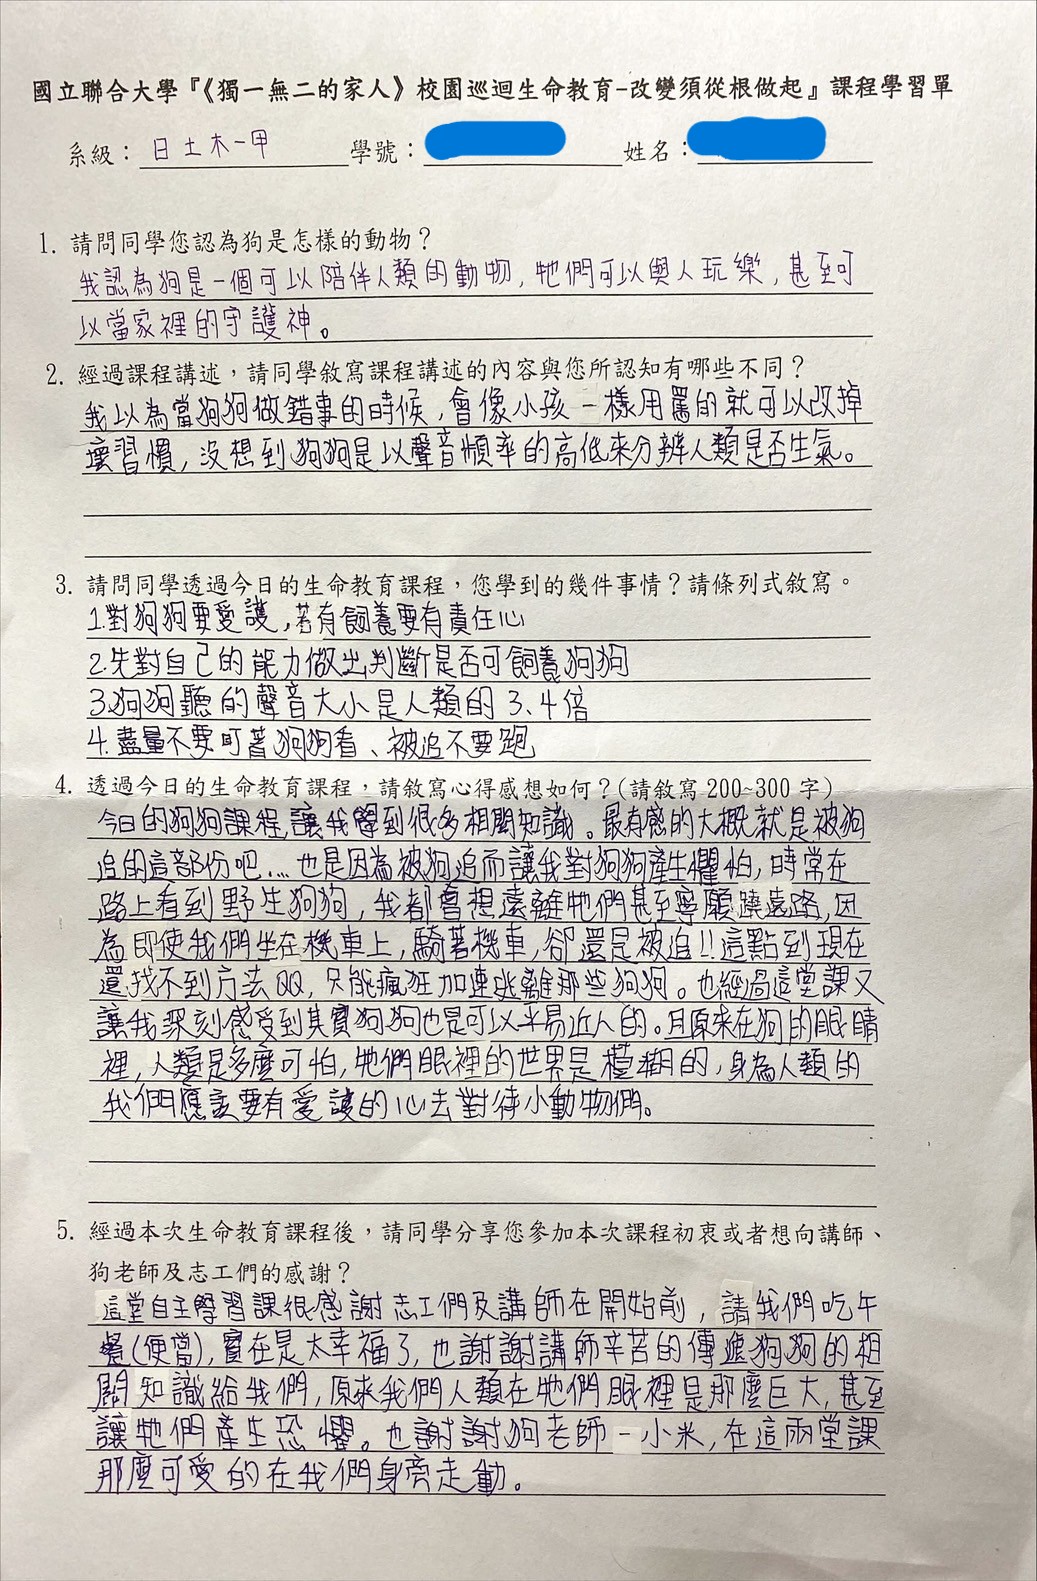 國立聯合大學『《獨一無二的家人》校園巡迴生命教育-改變須從根做起』課程學習單
系級：日土木一甲 學號： 姓名：
1. 請問同學您認為狗是怎樣的動物？
我認為狗是一個可以陪伴人類的動物，牠們可以與人玩樂，甚至可
以當家裡的守護神。
2. 經過課程講述，請同學敘寫課程講述的內容與您所認知有哪些不同？
我以為當狗狗做錯事的時候，會像小孩一樣用罵的就可以改掉
壞習慣，沒想到狗狗是以聲音頻率的高低來分辨人類是否生氣。
3. 請問同學透過今日的生命教育課程，您學到的幾件事情？請條列式敘寫。
1.對狗狗要愛護，若有飼養要有責任心
2.先對自己的能力做出判斷是否可飼養狗狗
3.狗狗聽的聲音大小是人類的3、4倍
4.盡量不要盯著狗狗看、被追不要跑
4. 透過今日的生命教育課程，請敘寫心得感想如何？(請敘寫 200~300 字)
今日的狗狗課程，讓我學到很多相關知識。最有感的大概就是被狗
追的這部份吧....也是因為被狗追而讓我對狗狗產生懼怕，時常在
路上看到野生狗狗，我都會想遠離牠們甚至寧願蹺遠路，因
為即使我們坐在機車上，騎著機車，卻還是被追!!這點到現在
還找不到方法QQ，只能瘋狂加速逃離那些狗狗。也經過這堂課又
讓我深刻感受到其實狗狗也是可以平易近人的。且原來在狗的眼睛
裡，人類是多麼可怕，牠們眼裡的世界是模糊的，身為人類的
我們應該要有愛護的心去對待小動物們。
5. 經過本次生命教育課程後，請同學分享您參加本次課程初衷或者想向講師、
狗老師及志工們的感謝？
這堂自主學習課很感謝志工們及講師在開始前，請我們吃午
餐(便當)，實在是太幸福了，也謝謝講師辛苦的傳遞狗狗的相
關知識給我們，原來我們人類在牠們眼裡是那麼巨大，甚至
讓牠們產生恐懼。也謝謝狗老師-小米，在這兩堂課
那麼可愛的在我們身旁走動。